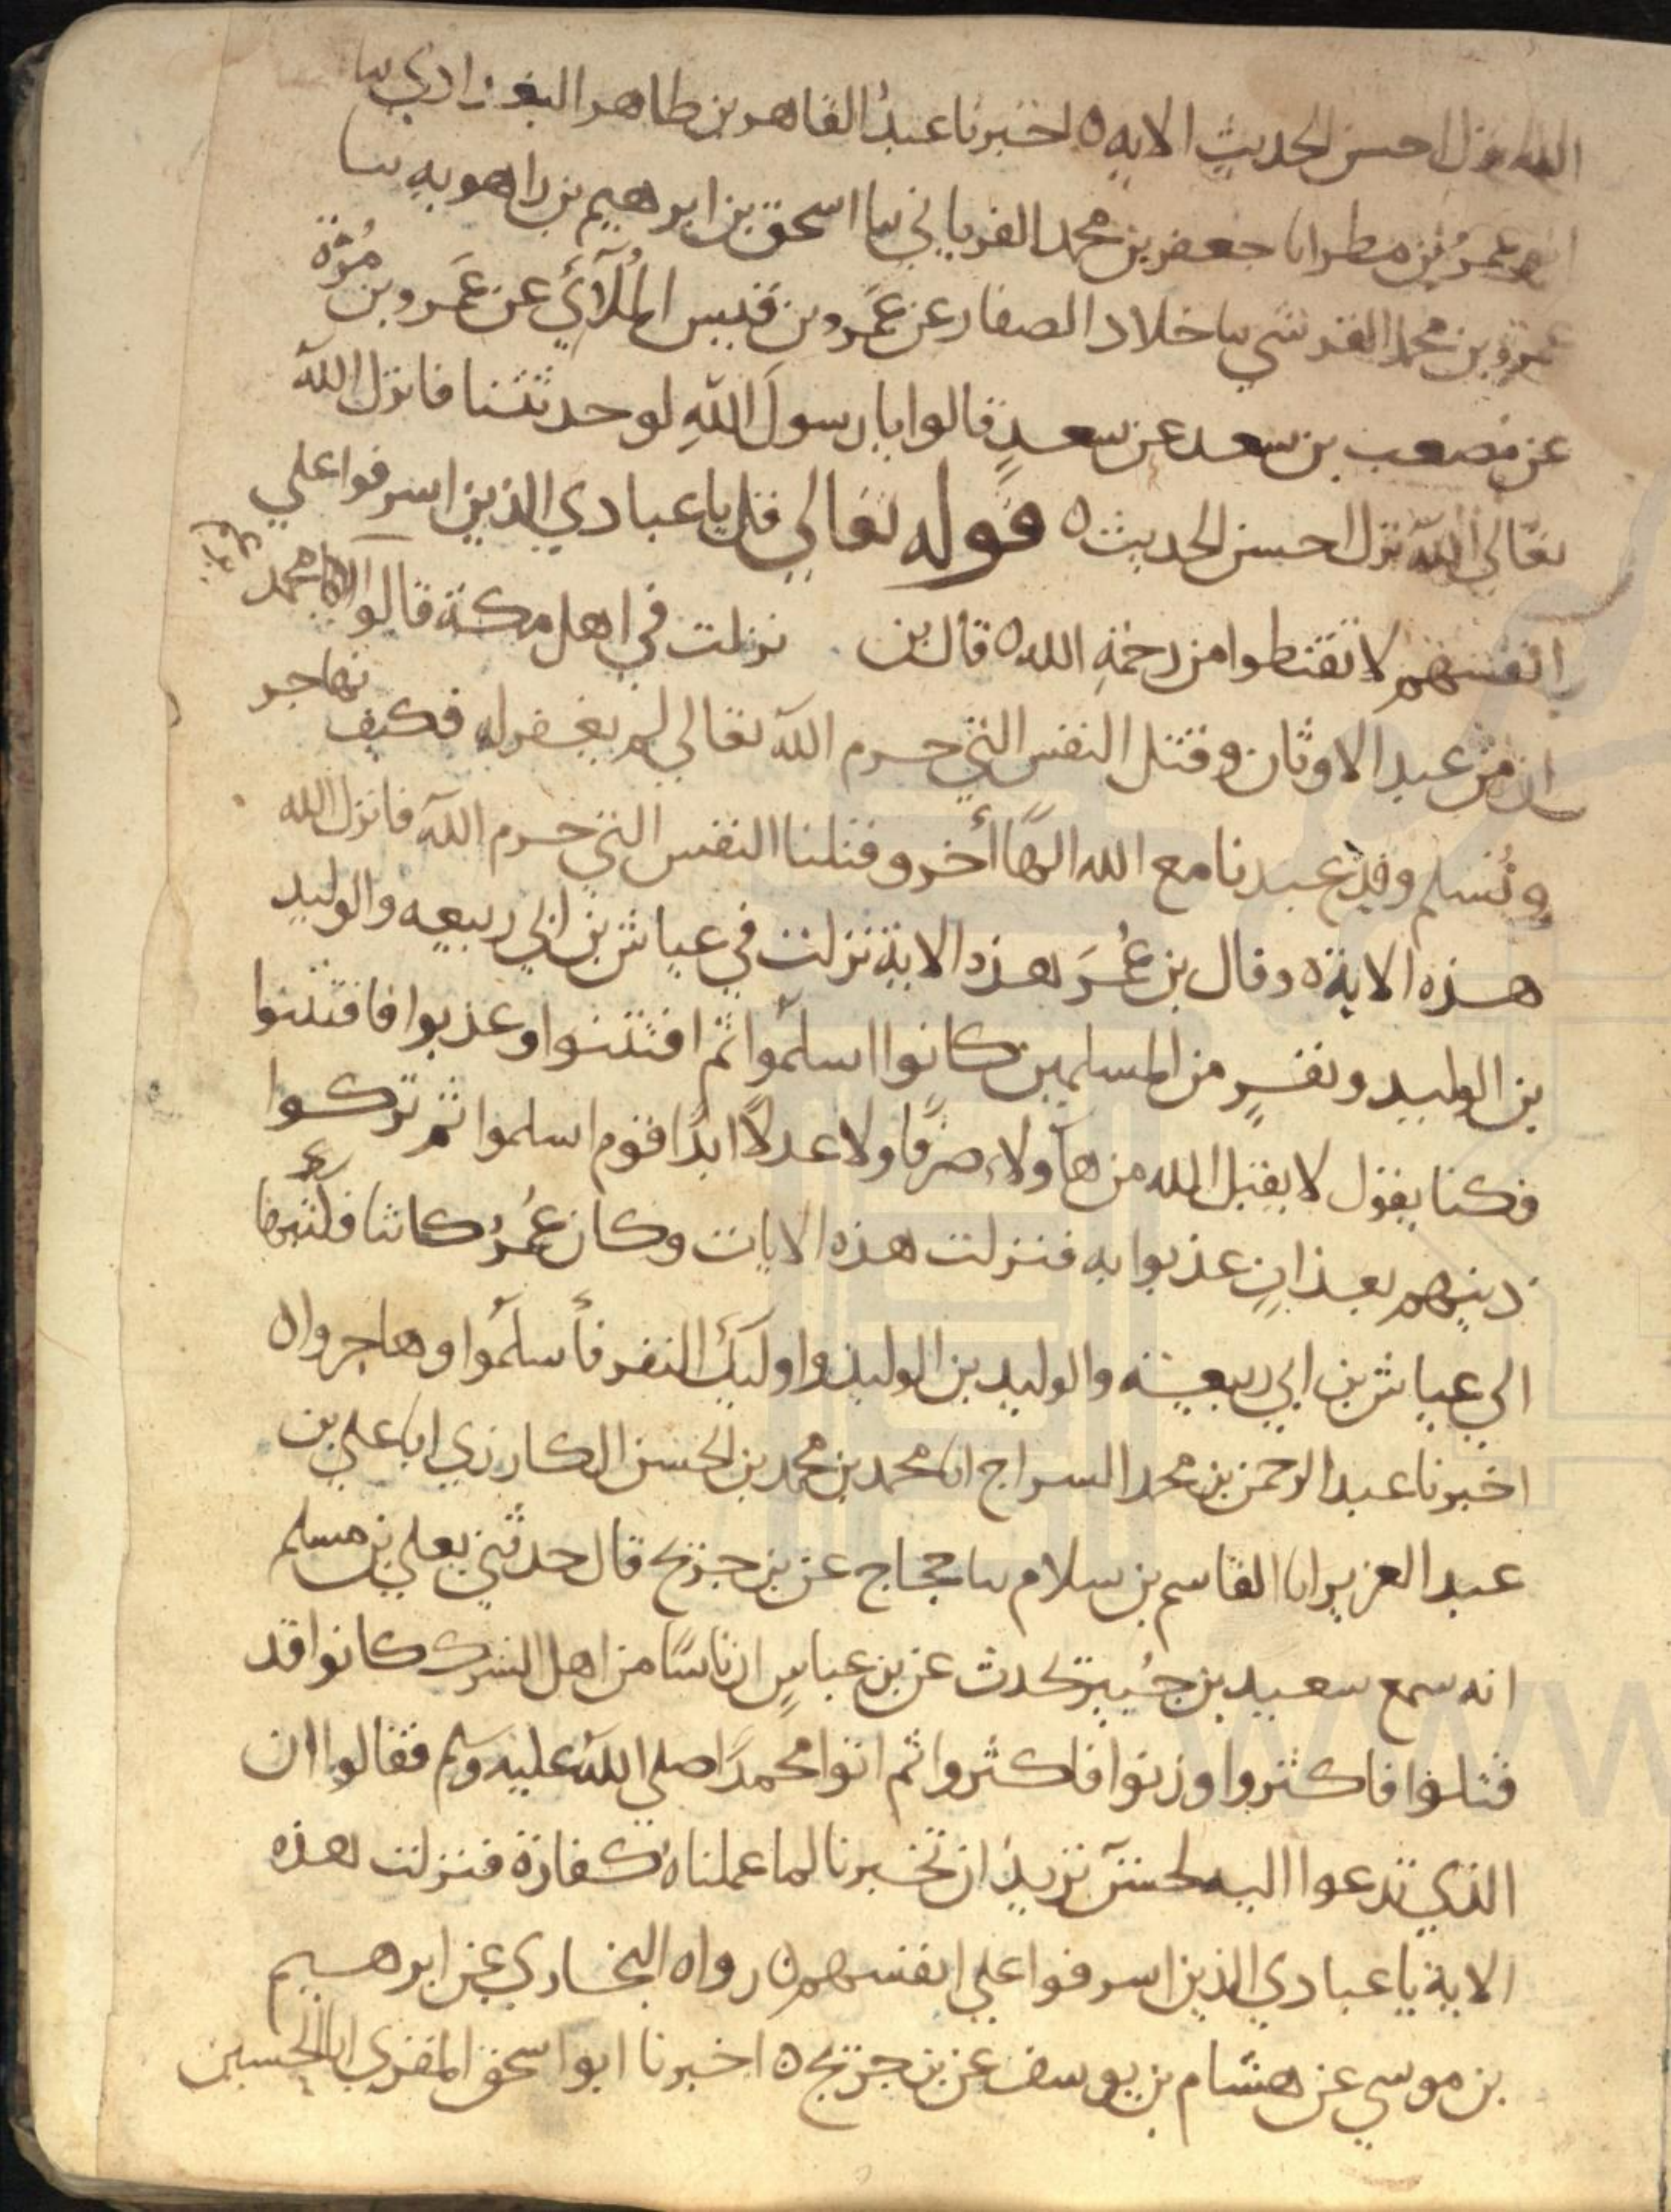 الله نزل احسن الحديث الايه ٥ اخبرنا عبد القاهر بن طاهر البغدادي سا
ابو عمرو بن مطر انا جعفر بن محمد الفريابي سا اسحق بن ابرهيم بن راهويه سا
عمرو بن محمد القرشي سا خلاد الصفار عن عمرو بن قيس الملآئي عن عمرو بن مرة
عن مصعب بن سعد عن سعد قالوا يا رسول الله لو حدثتنا فانزل الله
تعالي الله نزل احسن الحديث ٥ قوله تعالي قل يا عبادي الذين اسرفوا علي
انفسهم لا تقنطوا من رحمة الله ٥ قال بن نزلت في اهل مكة قالوا محمد
ان من عبد الاوثان وقتل النفس التي حرم الله تعالي لم يغفر له فكيف نهاجر
ونسلم وقد عبدنا مع الله الها أخر وقتلنا النفس التي حرم الله فانزل الله
هذه الاية ٥ وقال بن عمر هذه الاية نزلت في عياش بن ابي ربيعه والوليد
بن الوليد ونفر من المسلمين كانوا اسلموا ثم افتتنوا وعذبوا فافتتنوا
فكنا يقول لا يقبل الله من هآولاء صرفا ولا عدلا ابدا قوم اسلموا ثم تركوا
دينهم بعذاب عذبوا به فنزلت هذه الايات وكان عمر كاتبا فكتبها
الي عياش بن ابي ربيعة والوليد بن الوليد واوليك النفر فأسلموا وهاجروا ٥
اخبرنا عبد الرحمن بن محمد السراج انا محمد بن محمد بن الحسن الكارزي انا علي بن
عبد العزيز انا القاسم بن سلام سا حجاج عن بن جريج قال حدثني يعلي بن مسلم
انه سمع سعيد بن جبير يحدث عن بن عباس ان ناسا من اهل الشرك كانوا قد
قتلوا فاكثروا وزنوا فاكثروا ثم اتوا محمدا صلي الله عليه وسلم فقالوا ان
الذي تدعوا اليه لحسن نريد ان تخبرنا لما عملناه كفارة فنزلت هذه
الاية يا عبادي الذين اسرفوا علي انفسهم ٥ رواه البخاري عن ابرهيم
بن موسي عن هشام بن يوسف عن بن جريج ٥ اخبرنا ابو اسحق المقري انا الحسين